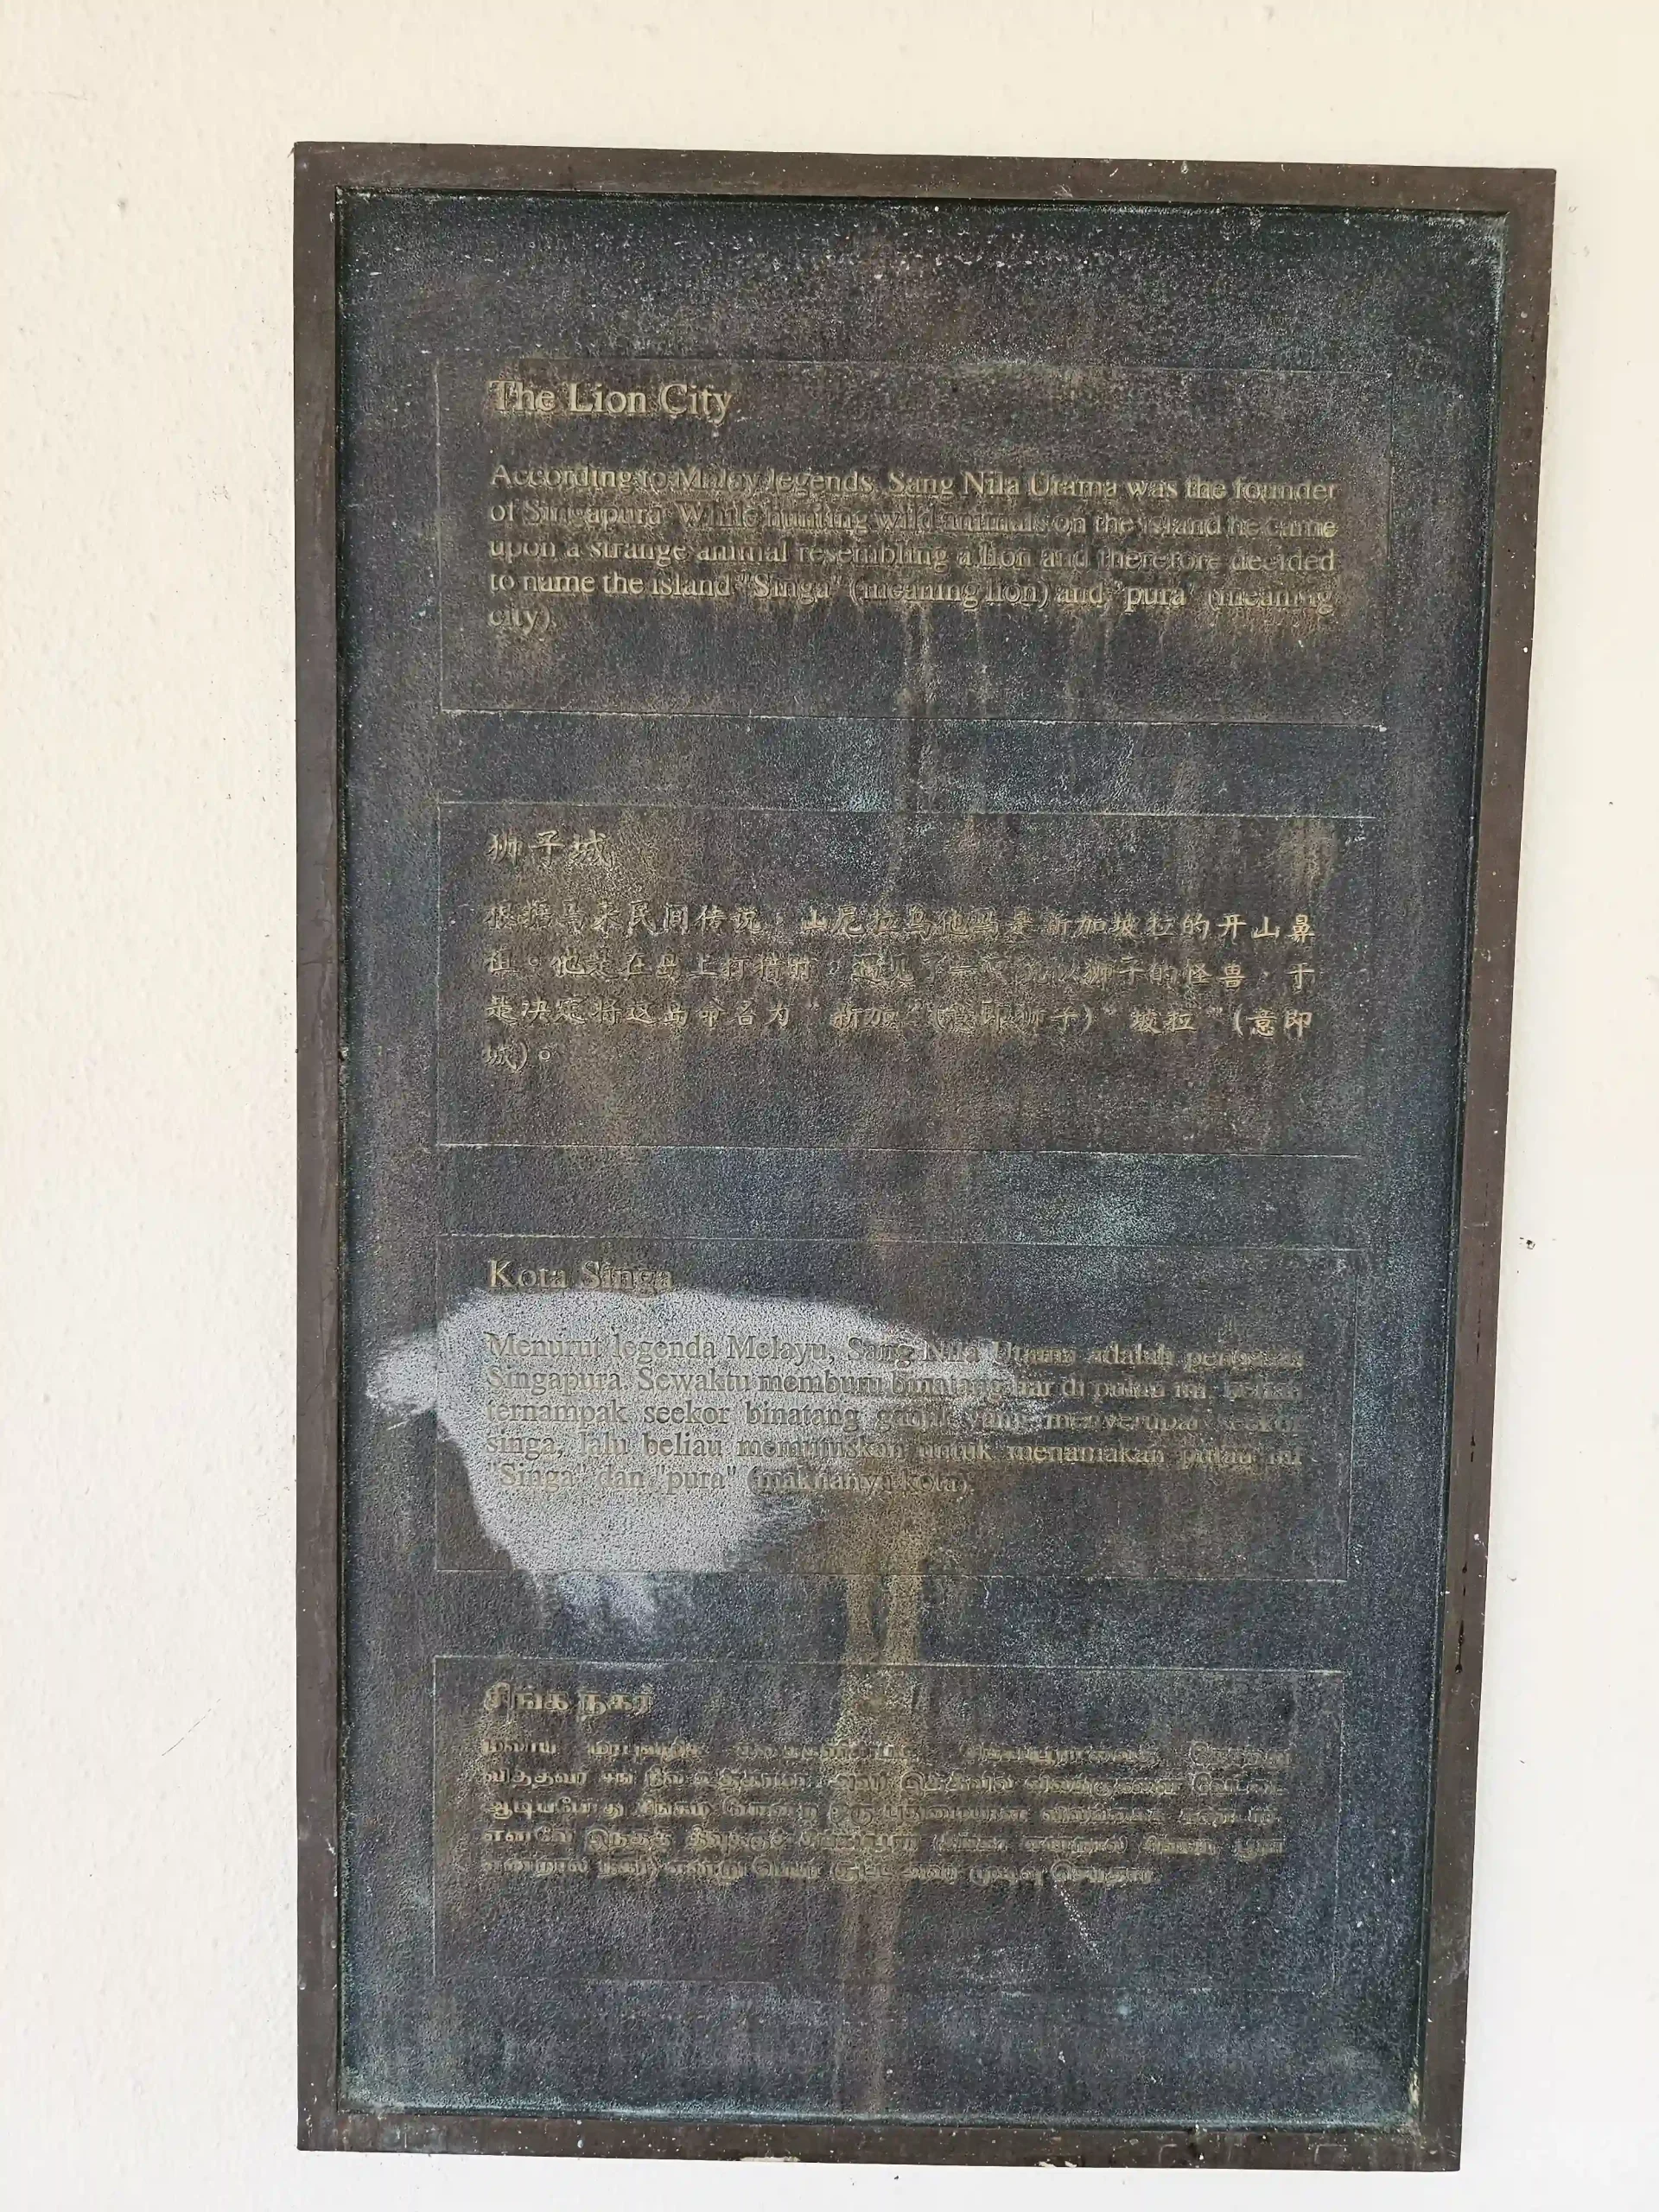 The Lion City
According to Malay legends, Sang Nila Utama was the founder
of Singapura. While hunting wild animals on the island he came
upon a strange animal resembling a lion and therefore decided
to name the island "Singa" (meaning lion) and "pura" (meaning
city).
狮子城
根据马来民间传说，山尼拉乌他马是新加坡拉的开山鼻
祖。他是在岛上打猎时，遇见了一只貌似狮子的怪兽，于
是决定将这岛命名为"新加"(意即狮子)"坡拉"(意即
城)。
Kota Singa
Menurut legenda Melayu, Sang Nila Utama adalah pengasas
Singapura. Sewaktu memburu binatang liar di pulau ini, beliau
ternampak seekor binatang ganjil yang menyerupai seekor
singa, lalu beliau memutuskan untuk menamakan pulau ini
"Singa" dan "pura" (maknanya kota).
சிங்க நகர்
மலாய
வித்தவர் நீல அவர்
ஆடியபோது ஒரு
எனவே இந்தத் தீவுக்குச் என்றால்
என்றால் நகர்) என்று பெயர் சூட்ட அவர் முடிவு செய்தார்.